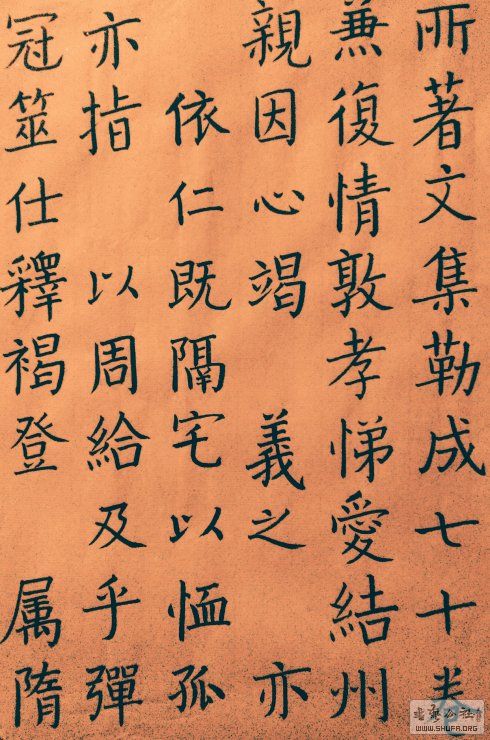 所著文集勒成七十卷
兼復情敦孝悌愛結州
親因心竭 義之 亦
依仁既隔宅以恤孤
亦指 以周給及乎彈
冠筮仕釋褐登 属隋
书法公社
WWW.SHUFA.ORG